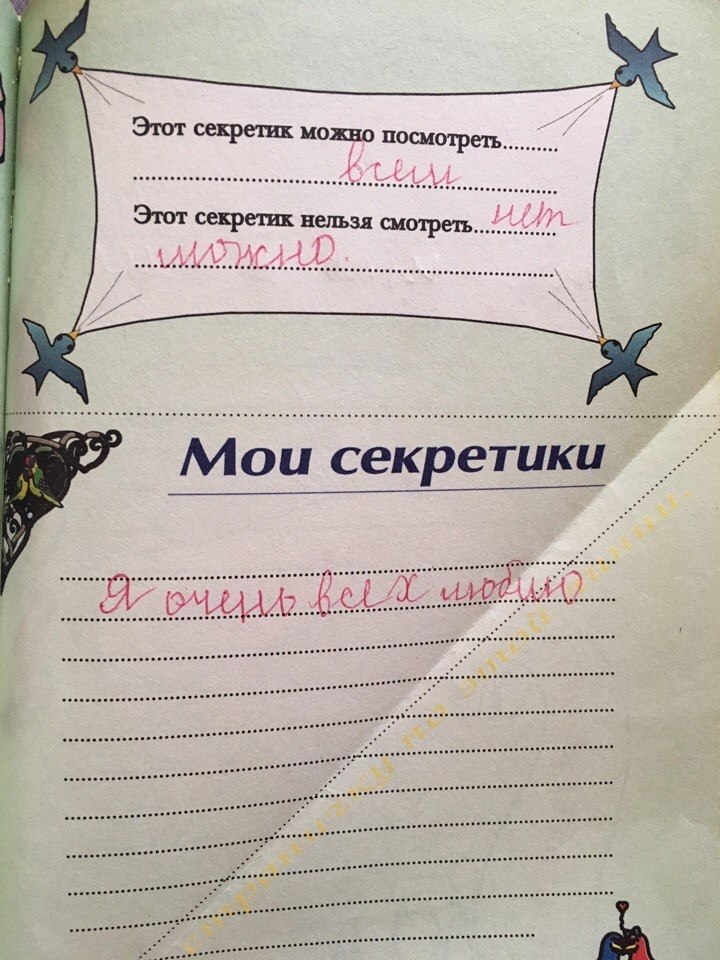 Этот секретик можно посмотреть..........
всем
Этот секретик нельзя смотреть.......... нет
можно.
Мои секретики
Я очень всех люблю
странички по этой линии.